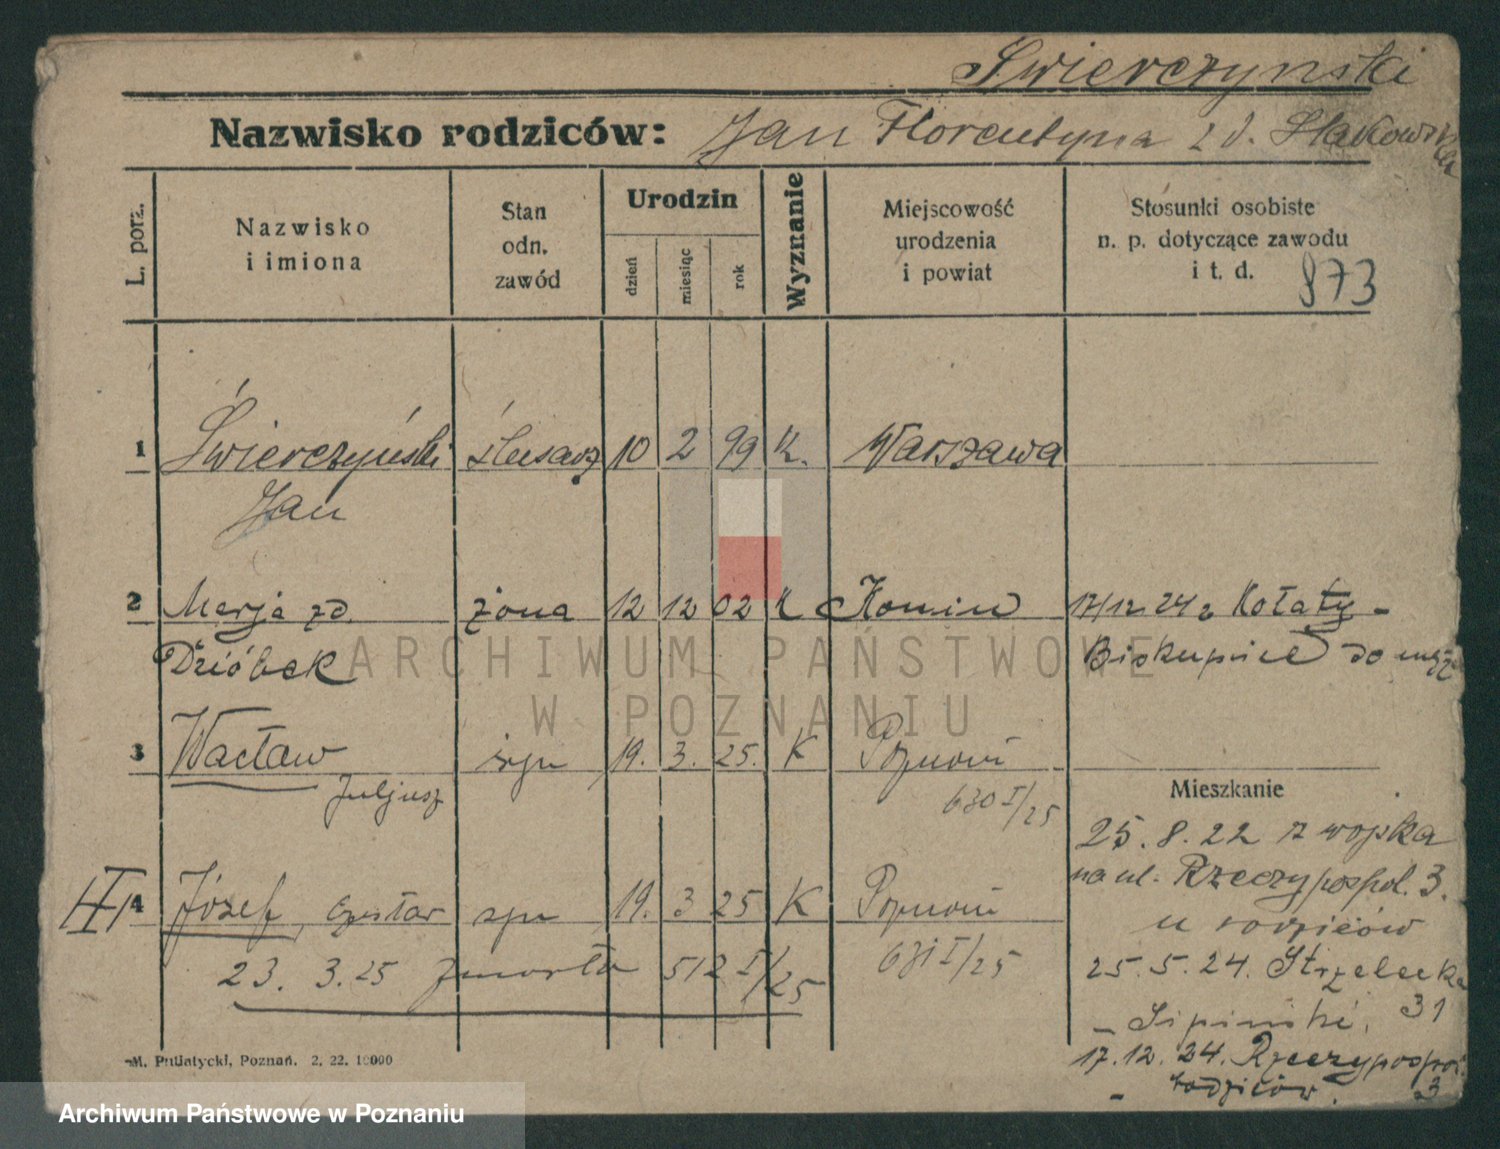 Świerczynski
Nazwisko rodziców: Jan Florentyna z d. Slakowska
L. porz.
Nazwisko i imiona
Stan odn. zawód
Urodzin
dzień
miesiąc
rok
Wyznanie
Miejscowość urodzenia i powiat
Stosunki osobiste n. p. dotyczące zawodu i t. d.
873
1 Świerczyński ślusarz 10 2 99 K. Warszawa
Jan
2 Marja zd. żona 12 12 02 K Konin 17/12 24 z Kołaty-
Dzióbek Biskupice do męża
3 Wacław syn 19. 3. 25. K Poznań
Juljusz 630 I/25
4 Józef, syn 19. 3 25 K Poznań
23. 3. 25 zmarł 512 I/25 631 I/25
Mieszkanie
25. 8. 22 z wojska
na ul. Rzeczypospol. 3.
u rodziców
25. 5. 24. Strzelecka
31
- Lipinski,
17. 12. 24. Rzeczypospol.
3
- rodziców.
M. Putiatycki, Poznań. 2. 22. 10000
ARCHIWUM PAŃSTWOWE
W POZNANIU
Archiwum Państwowe w Poznaniu